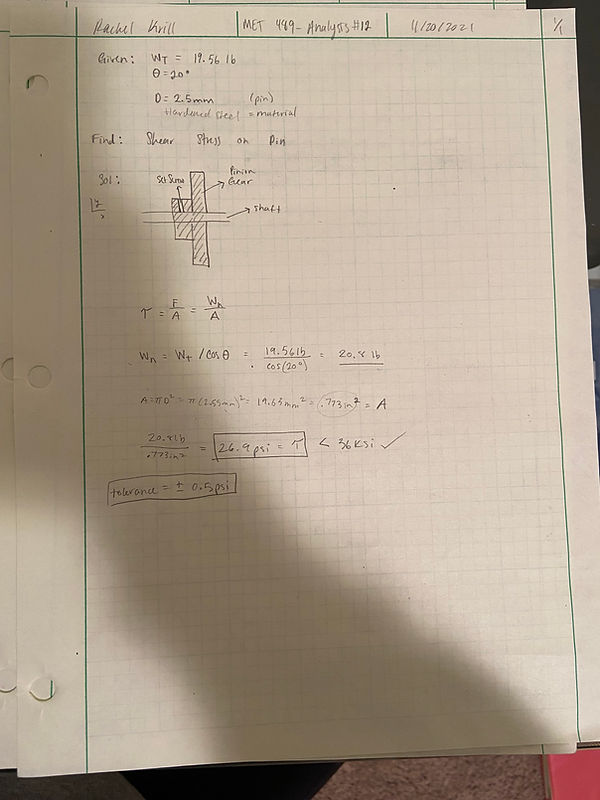 Rachel Krill MET 489 - Analysis #12 11/20/2021 1/1
Given: WT = 19.56 lb
θ = 20°
D = 2.5mm (pin)
Hardened steel = material
Find: Shear Stress on Pin
Sol:
Set Screw
Pinion
Gear
y
x
shaft
τ = F/A = Wn/A
Wn = Wt / cos θ = 19.56 lb / cos(20°) = 20.8 lb
20.8 lb / .773in² = 26.9 psi = τ < 36 Ksi ✓
tolerance = ± 0.5 psi